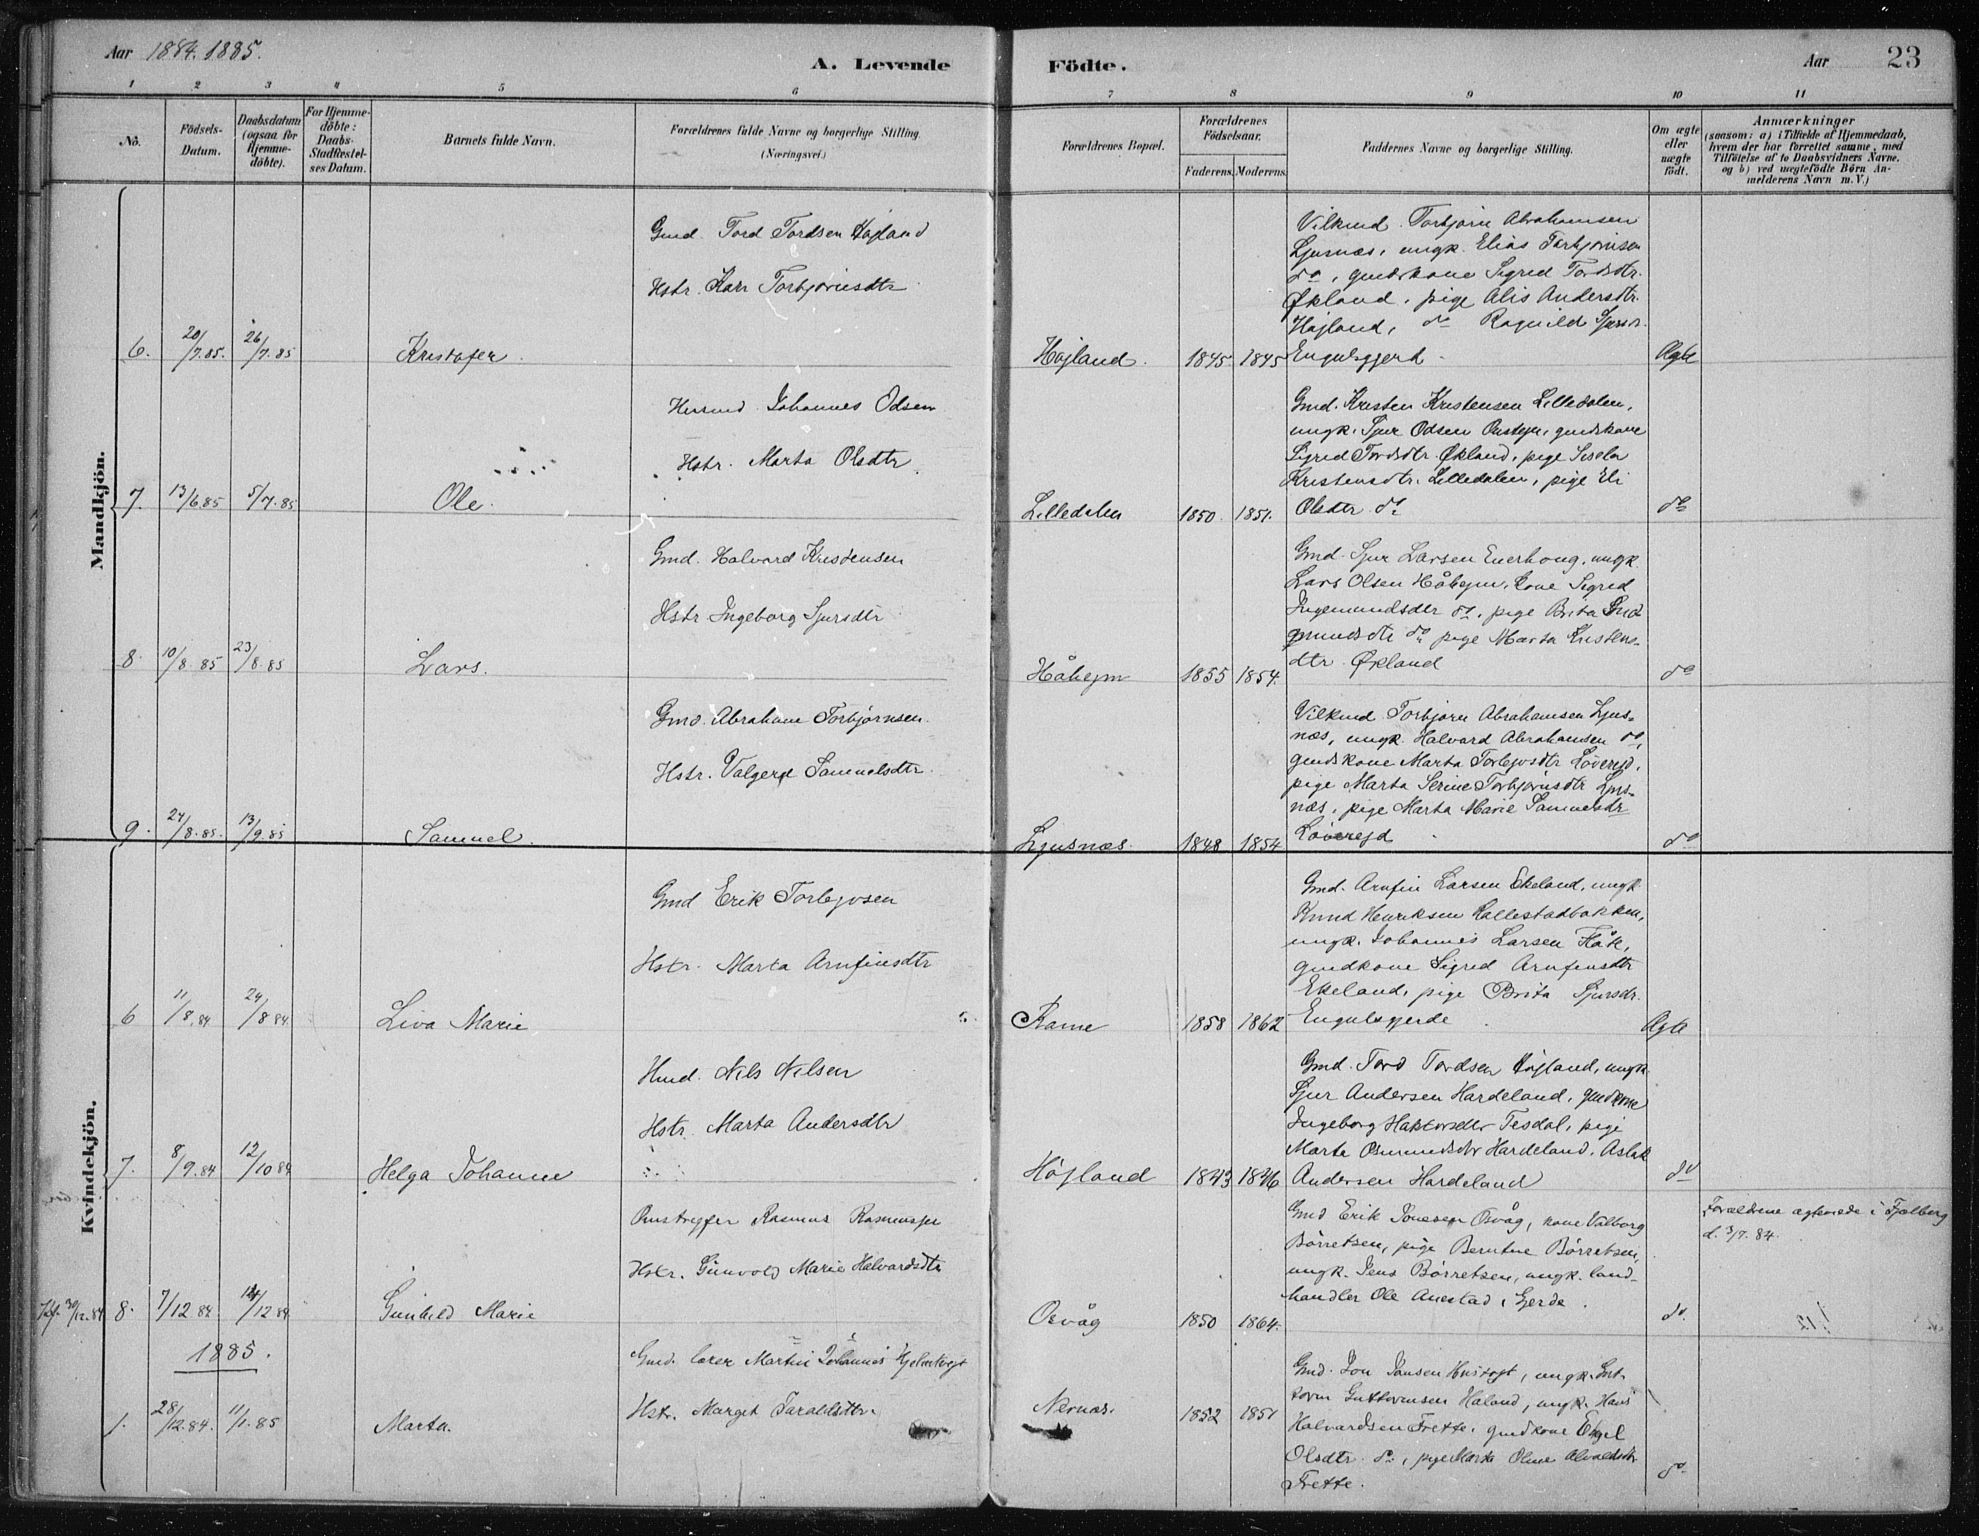 Aar 1884. 1885.
A. Levende Födte.
Aar 23
1 2 3 4 5 6 7 8 9 10 11
No.
Födsels-
Datum.
Daabsdatum
(ogsaa for
Hjemme-
döbte).
For Hjemme-
döbte:
Daabs-
Stadfæstel-
ses Datum.
Barnets fulde Navn.
Forældrenes fulde Navne og borgerlige Stilling.
(Næringsvei.)
Forældrenes Bopæl.
Forældrenes
Födselsaar.
Faderens. Moderens.
Faddernes Navne og borgerlige Stilling.
Om ægte
eller
uægte
födt.
Anmærkninger
(saasom: a) i Tilfælde af Hjemmedaab,
hvem der har forrettet samme, med
Tilföielse af to Daabsvidners Navne,
og b) ved uægtefödte Børn An-
melderens Navn m. V.)
Mandkjön.
6. 20/7.85. 26/7.85 Kristofer
Gmd. Tord Tordsen Højland
Hstr. Kari Torbjørnsdtr
Højland. 1845 1845
Vilkmd. Torbjørn Abrahamsen
Ljusnæs, ungk. Elias Torbjørnsen
do, gmdskone Sigred Tordsdtr.
Økland, pige Alis Andersdtr.
Højland, do Ragnild Sjursdr.
Engelsgjerd
Ægte
7. 13/6.85 5/7.85 Ole.
Husmd Johannes Odsen
Hstr. Marta Olsdtr
Lilledalen 1850. 1851.
Gmd. Kristen Kristensen Lilledalen,
ungk. Sjur Odsen, gmdskone
Sigred Tordsdtr Økland, pige Sisela
Kristensdtr. Lilledalen, pige Eli
Olsdtr do
do
8. 10/8.85 23/8.85 Lars.
Gmd. Halvard Kristensen
Hstr Ingeborg Sjursdtr
Håhejm 1855 1854.
Gmd. Sjur Larsen Enerhoug, ungk.
Lars Olsen Håhejm, kone Sigred
Ingemundsdtr do, pige Brita
do pige Marta Kristens-
dtr. Økland
do
9. 24/8.85. 13/9.85 Samuel.
Gmd. Abraham Torbjørnsen.
Hstr. Valgerd Samuelsdtr.
Ljusnæs. 1848 1854
Vilkmd. Torbjørn Abrahamsen Ljus-
næs, ungk. Halvard Abrahamsen do,
gmdskone Marta Torbjørsdtr Løverejd,
pige Marta Serine Torbjørnsdtr Ljus-
næs, pige Marta Marie Samuelsdr
Løverejd
do
Kvindekjön.
6 11/8.84 24/8 84. Liva Marie
Gmd Erik Torbjørsen
Hstr. Marta Arnfinsdtr
Rame 1858 1862
Gmd. Arnfin Larsen Ekeland, ungk.
Knud Henriksen Hallestadbakken,
ungk. Johannes Larsen Flåte,
gmdkone Sigred Arnfinsdtr
Ekeland, pige Brita Sjursdr.
Engelsgjerde
Ægte
7. 8/9.84 12/10 84 Helga Johanne
Hmd. Nils Nilsen
Hstr. Marta Andersdtr
Højland 1843 1846
Gmd. Tord Tordsen Højland, ungk.
Sjur Andersen Hardeland, gmdkone
Ingeborg Haktorsdtr Tesdal, pige
Marta Osmundsdtr Hardeland, Aslak
Andersen Hardeland
do
30/12.84 8. 7/12 84. 14/12 84 Gunhild Marie
Rasmus Rasmussen
Hstr. Gunvold Marie Halvardsdtr
Osvåg 1850 1864.
Gmd Erik Jonesen Osvåg, kone Valborg
Børretsen, pige Berntine Børretsen,
ungk. Jens Børretsen, ungk. land-
handler Ole Anestad i Gjerde.
do.
Forældrene ægteviede i Fjelberg
d. 3/7.84.
1885.
1. 28/12.84. 11/1.85 Marta.
Gmd. lærer Martin Johannes
Hstr. Marget Taraldsdtr.
Nernæs. 1852 1851
Gmd. Jon Jansen Hustoft, ungk. Gut-
torm Guttormsen Haland, ungk. Hans
Halvardsen Frette, gmdkone Engel
Olsdtr. do, pige Marta Oline
Frette.
do.